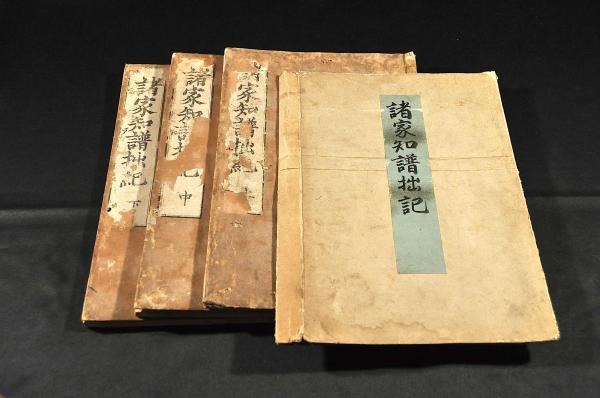 諸家知譜拙記
諸家知譜拙紀 上
諸家知譜拙紀 中
諸家知譜拙紀 下